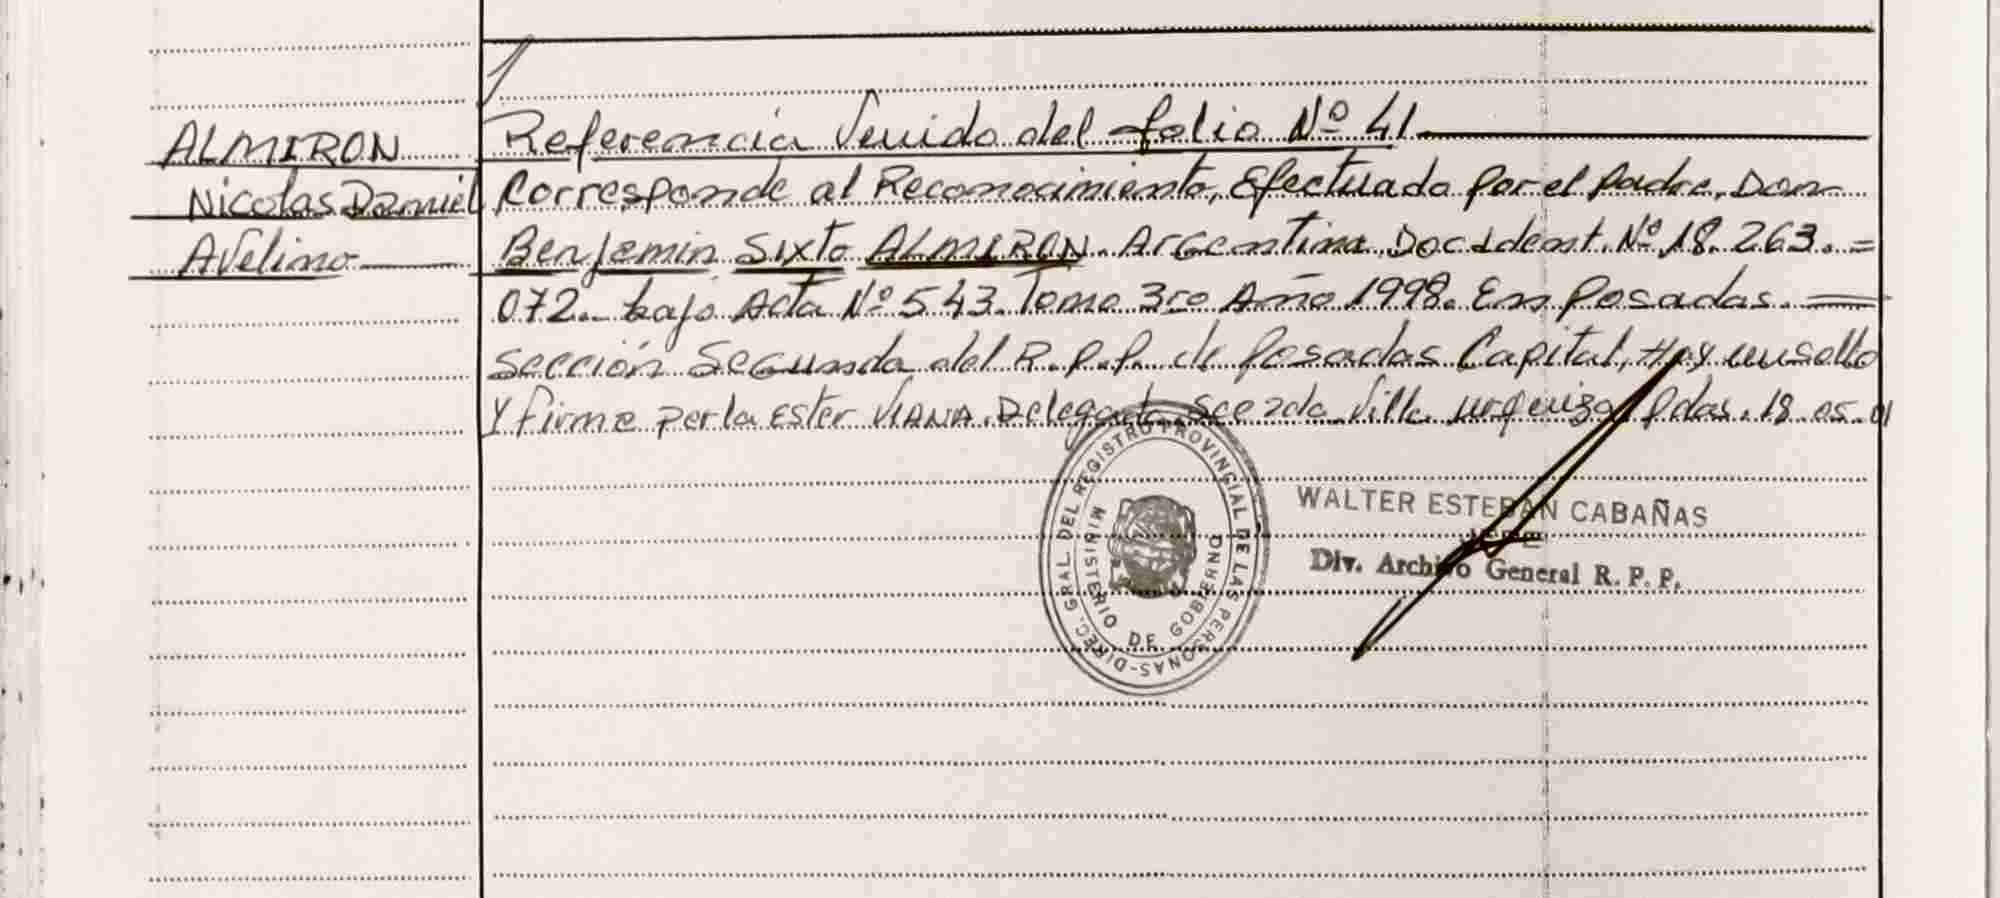 ALMIRON
Nicolas Daniel
Avelino
Referencia Venido del folio Nº 41
Corresponde al Reconocimiento, Efectuado por el padre, Don
Benjemin Sixto ALMIRON. Argentino. Doc Ident. Nº 18.263.=
072.. bajo Acta Nº 543. Tomo 3ro Año 1998. En Posadas.
Sección Segunda del R.P.P. de Posadas Capital, Hay un sello
Y firme por la Ester VIANA. Delegada Scc 2da Villa Urquiza Pdas. 18.05.01
DIREC. GRAL. DEL REGISTRO PROVINCIAL DE LAS PERSONAS-
MINISTERIO DE GOBIERNO
WALTER ESTEBAN CABAÑAS
JEFE
Div. Archivo General R. P. P.